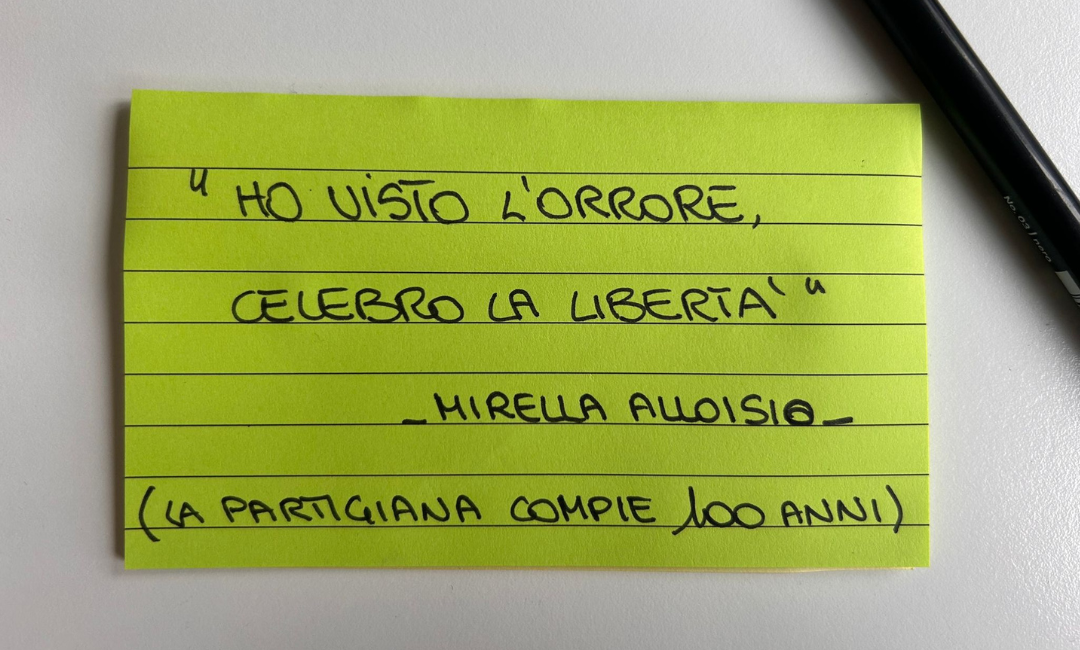 "HO VISTO L'ORRORE,
CELEBRO LA LIBERTA'"
_MIRELLA ALLOISIO_
(LA PARTIGIANA COMPIE 100 ANNI)
No. 03 | nero